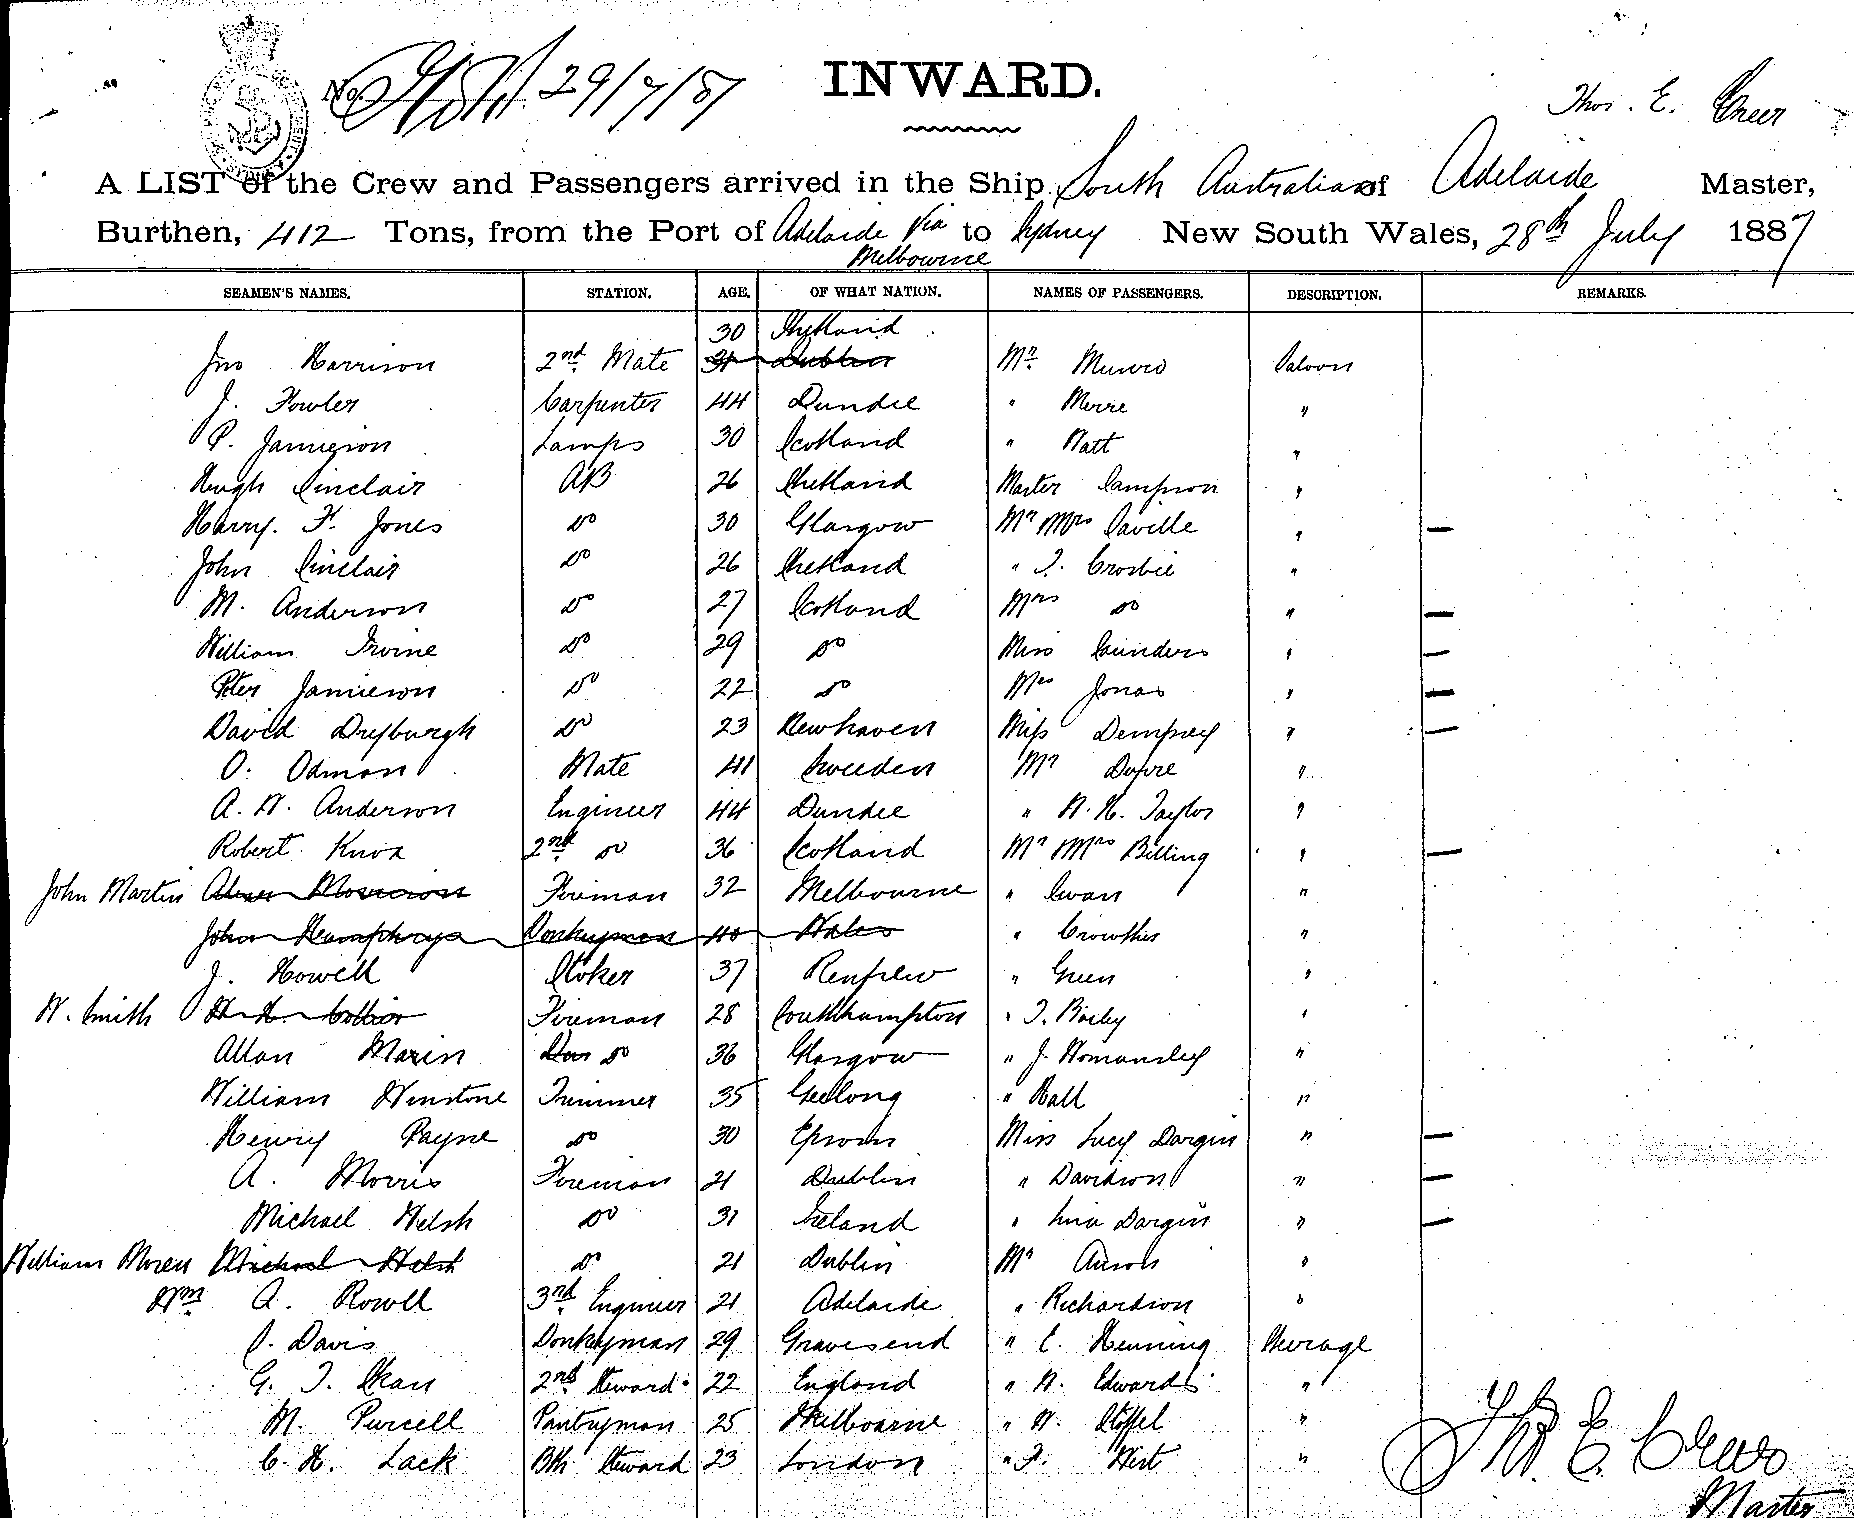 No. 29/7/87 INWARD. Thos. E. Creer
A LIST of the Crew and Passengers arrived in the Ship South Australian of Adelaide Master,
Burthen, 412 Tons, from the Port of Adelaide Via to Sydney New South Wales, 28th July 1887
Melbourne
SEAMEN'S NAMES. STATION. AGE. OF WHAT NATION. NAMES OF PASSENGERS. DESCRIPTION. REMARKS.
30 Shetland
Jno Harrison 2nd Mate 31 Dublin Mr Munro Saloon
J. Fowler Carpenter 44 Dundee " "
P. Jamieson Lamps 30 Scotland " Watt "
Hugh Sinclair AB 26 Shetland Master Sampson "
Harry. F. Jones Do 30 Glasgow Mr Mrs Saville " —
John Sinclair Do 26 Shetland " T. Crosbie "
M. Anderson Do 27 Scotland Mrs Do " —
William Irvine Do 29 Do Miss Saunders " —
Peter Jamieson Do 22 Do Mrs Jonas " —
David Drysburgh Do 23 Newhaven Miss Dempsey " —
O. Odman Mate 41 Sweeden Mr "
A. W. Anderson Engineer 44 Dundee " Taylor "
Robert Knox 2nd Do 36 Scotland Mr Mrs Billing " —
John Martin Morrison Fireman 32 Melbourne " Swan "
John Humphrys Donkeyman 40 Wales " Crowther "
J. Howell Stoker 37 Renfrew " Green "
W. Smith Collier Fireman 28 Southhampton " T. Bailey "
Allan Marin Do 36 Glasgow " J. Womansley "
William Winstone Trimmer 35 Geelong " Hall "
Henry Payne Do 30 Epsom Miss Lucy Dargin " —
A. Morris Fireman 21 Dublin " Davidson " —
Michael Welsh Do 31 Ireland " Dargin " —
William Moren Michael Welsh Do 21 Dublin Mr "
Wm A. Rowell 3rd Engineer 21 Adelaide " Richardson "
Davis Donkeyman 29 Gravesend " E. Henning Steerage
G. T. Skan 2nd Steward 22 England " W. Edwards "
M. Purcell Pantryman 25 Melbourne " W. Stoffel "
C. H. Lack Bth Steward 23 London " F. West "
Thos. E. Creer
Master